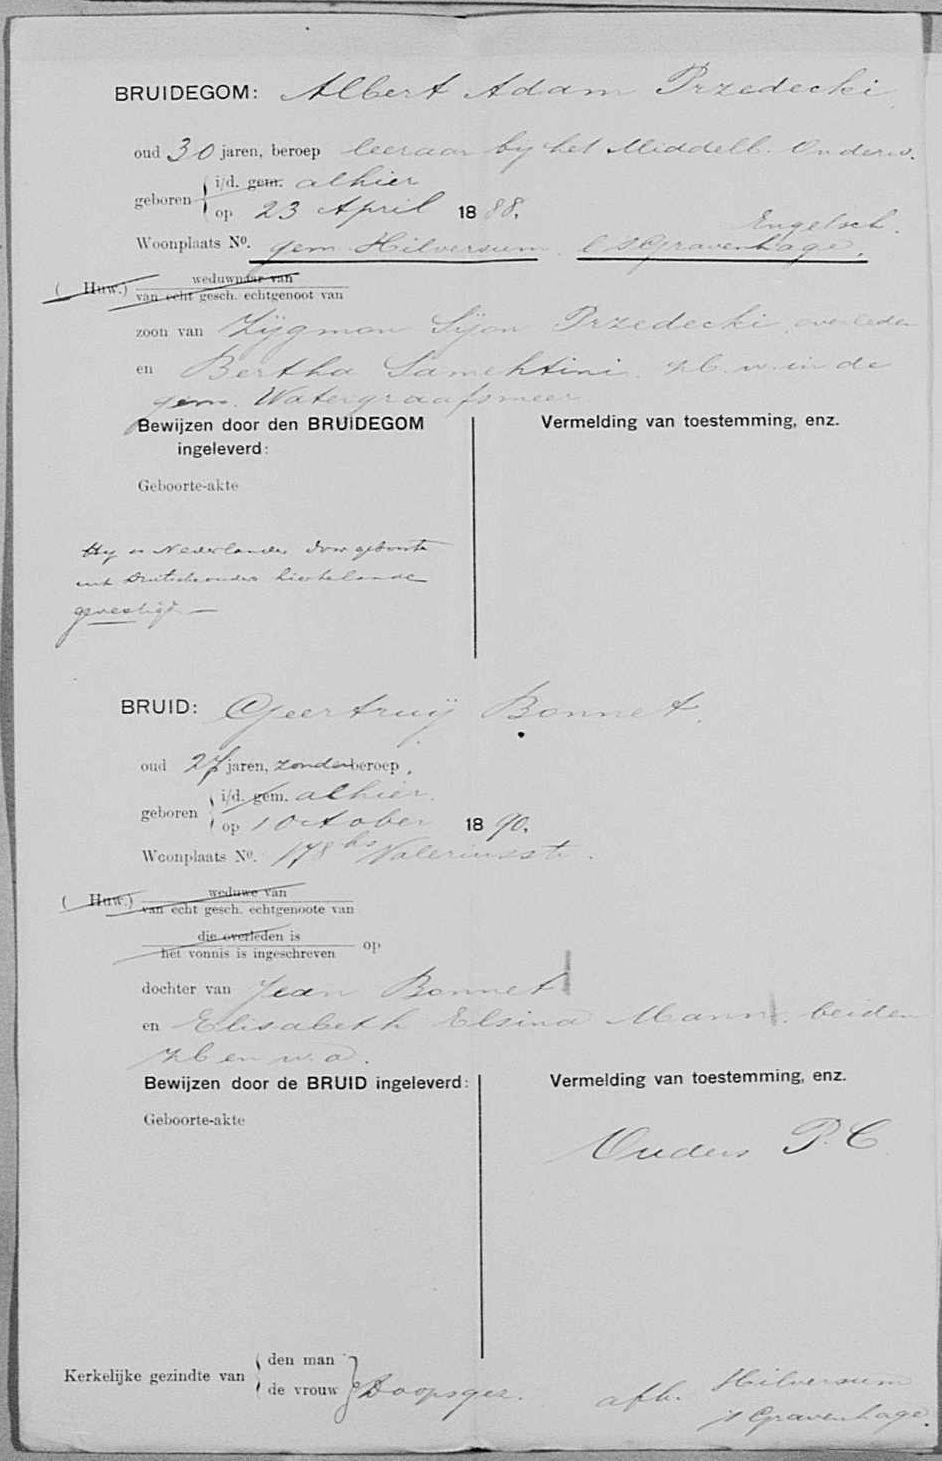 BRUIDEGOM: Albert Adam Przedecki
oud 30 jaren, beroep leeraar bij het Middelb. Onderw.
geboren i/d. gem. alhier
op 23 April 1888.
Engelsch.
Woonplaats No. gem. Hilversum 's Gravenhage.
( Huw.) weduwnaar van
van echt gesch. echtgenoot van
zoon van Zijgmon Sijon Przedecki, overleden
en Bertha Samehtini. z.b. w. in de
gem. Watergraafsmeer
Bewijzen door den BRUIDEGOM Vermelding van toestemming, enz.
ingeleverd:
Geboorte-akte
Hij is Nederlander door geboorte
uit Duitsche ouders hier te lande
gevestigd
BRUID: Geertruij Bonnet.
oud 27 jaren, zonder beroep.
geboren i/d. gem. alhier.
op 1 October 1890.
Woonplaats No. 178 hs Valeriusstr.
( Huw.) weduwe van
van echt gesch. echtgenoote van
die overleden is
het vonnis is ingeschreven op
dochter van Jean Bonnet
en Elisabeth Elsina Mann. beiden
z.b. en w.a.
Bewijzen door de BRUID ingeleverd: Vermelding van toestemming, enz.
Geboorte-akte
Ouders P.C.
Kerkelijke gezindte van den man
de vrouw Doopsgez.
afk. Hilversum
's Gravenhage.